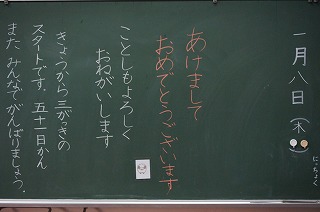 一月八日(木)
にっちょく
あけまして
おめでとうございます
ことしもよろしく
おねがいします
きょうから三がっきの
スタートです。五十一日かん
また みんなで がんばりましょう。